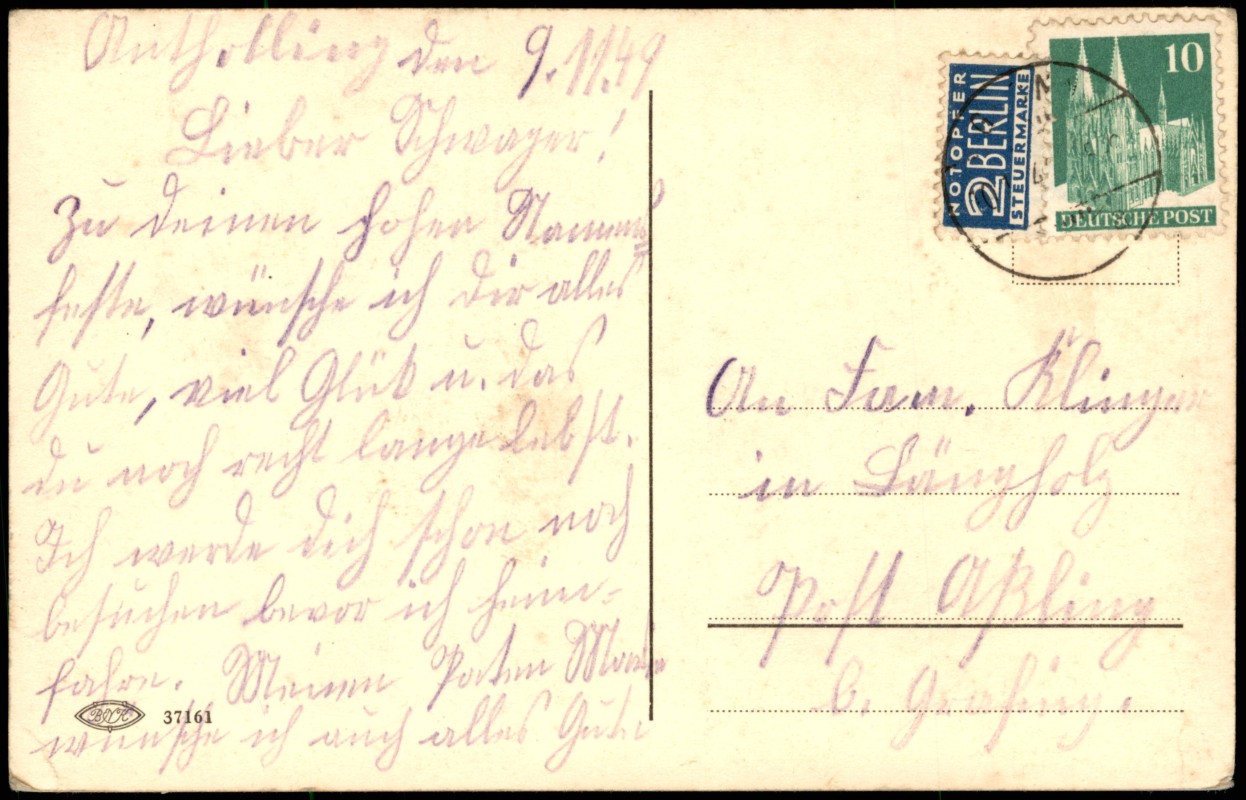 Antholling den 9.11.49
Lieber Schwager!
Zu deinen hohen Namens
feste, wünsche ich dir alles
Gute, viel Glück u. das
du noch recht lange lebst.
Ich werde dich schon noch
besuchen bevor ich heim-
fahre. Meinen Paten
wünsche ich auch alles Gute
BNK 37161
NOTOPFER
2 BERLIN
STEUERMARKE
10
DEUTSCHE POST
An Fam. Klinger
in Längholz
Post Aßling
b. Grafing.